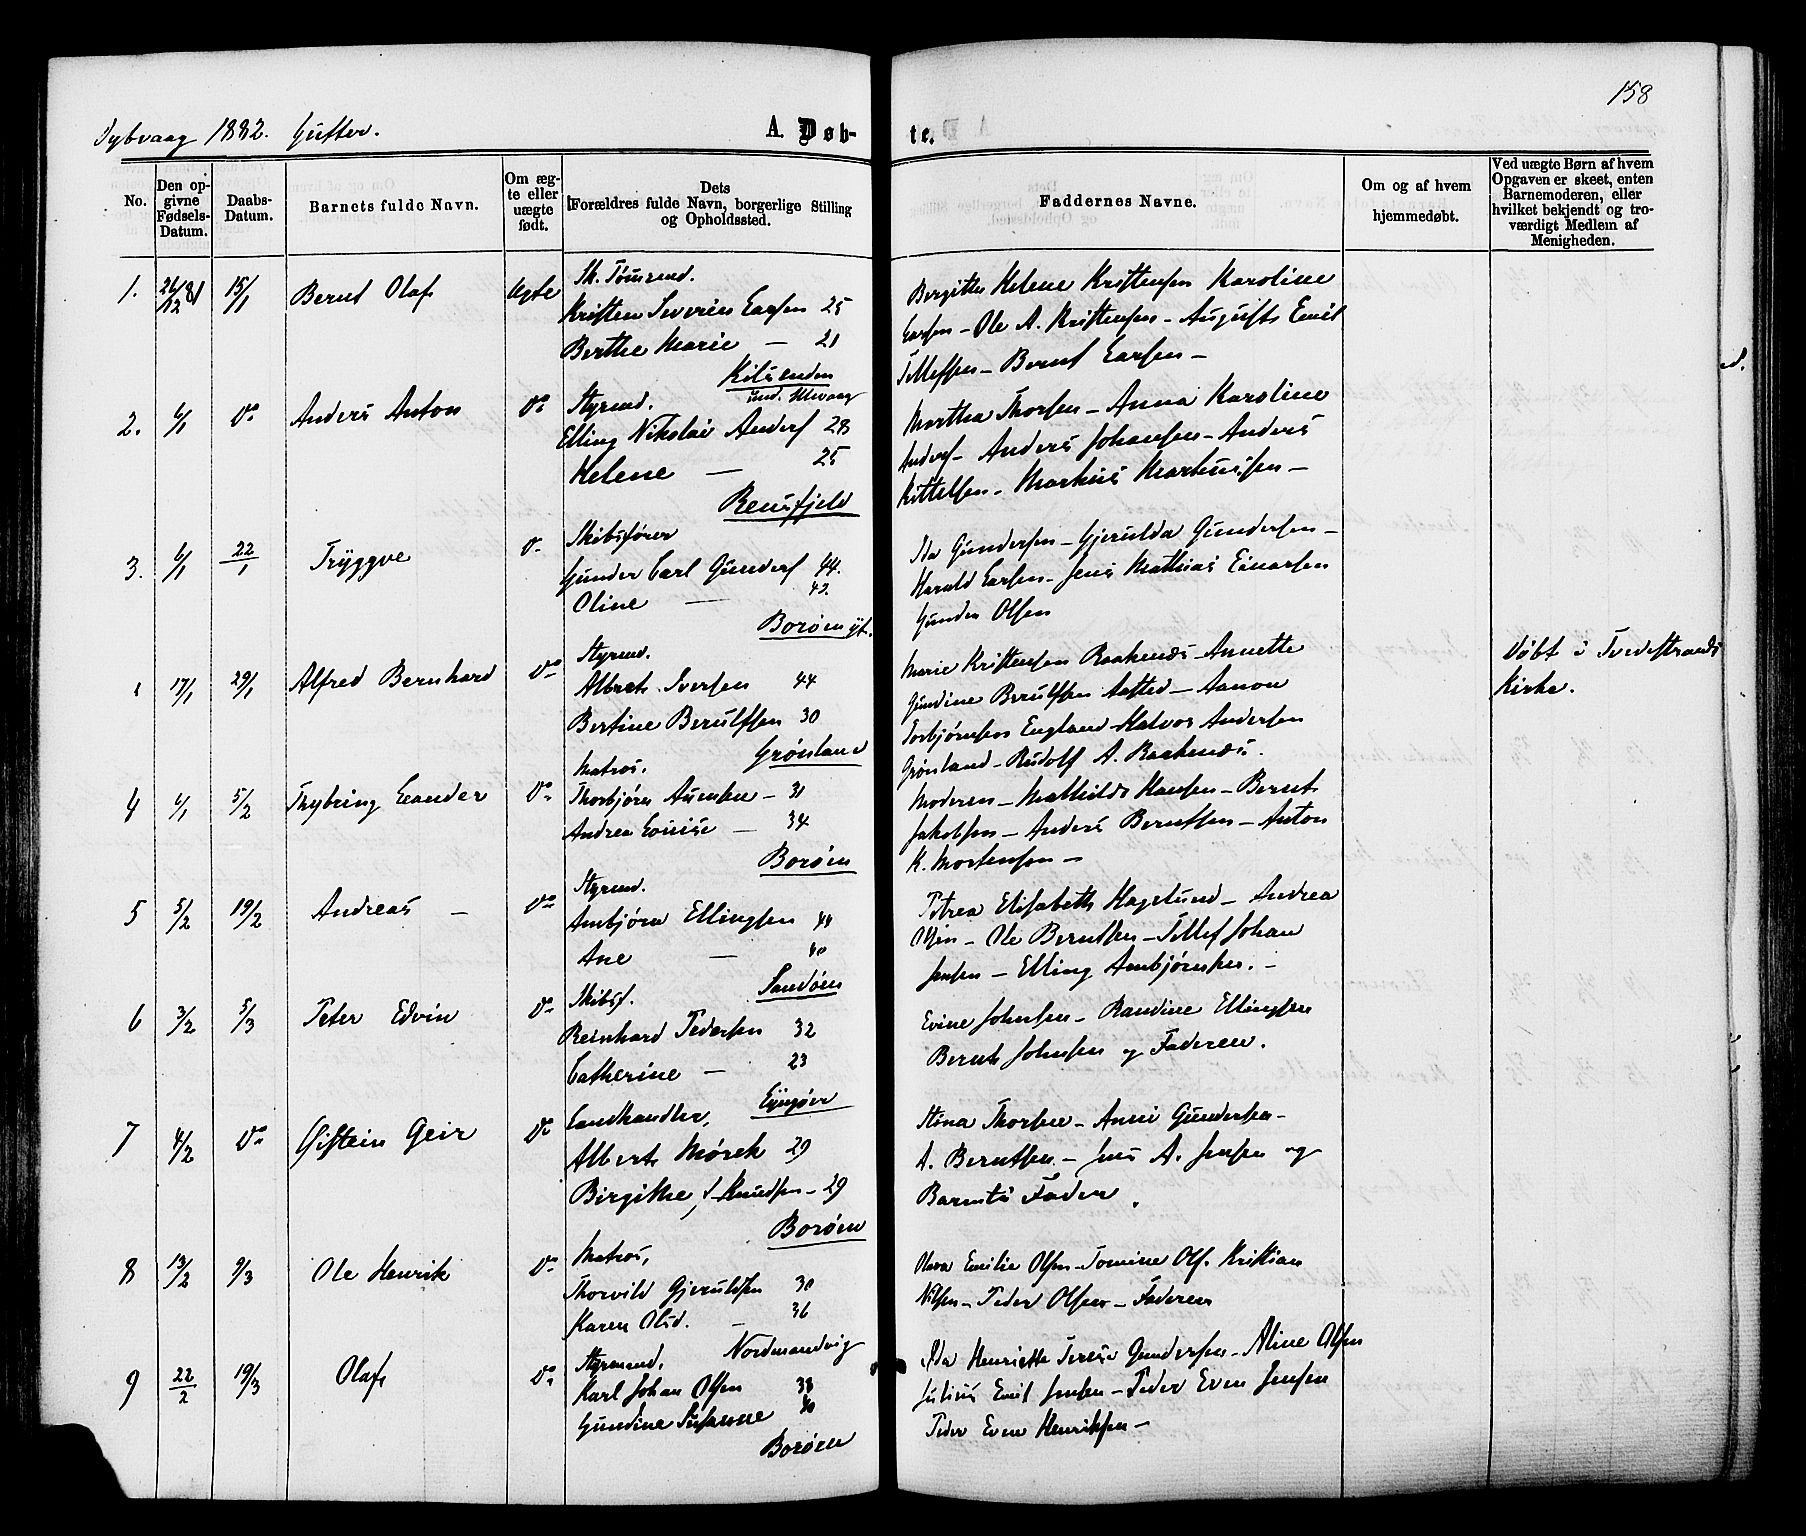 158
Dybvaag 1882. Gutter.
A. Døb-
te.
No.
Den op-
givne
Fødsels-
Datum.
Daabs-
Datum.
Barnets fulde Navn.
Om æg-
te eller
uægte
født.
Dets
Forældres fulde Navn, borgerlige Stilling
og Opholdssted.
Faddernes Navne.
Om og af hvem
hjemmedøbt.
Ved uægte Børn af hvem
Opgaven er skeet, enten
Barnemoderen, eller
hvilket bekjendt og tro-
værdigt Medlem af
Menigheden.
1. 26/12 81 15/1 Bernt Olaf Ægte
Sk. Tømrmd.
Kristen Severin Larsen 25
Berthe Marie — 21
Kilsenden
und. Ulevaag
Birgitte Helene Kristensen Karoline
Larsen – Ole A. Kristensen – August Emil
Tellefsen – Bernt Larsen –
2. 6/1 Do Anders Anton Do
Styrmd.
Elling Nikolai Anders 28
Helene — 25
Rensfjeld
Martha Thorsen – Anna Karoline
Anders – Anders Johansen – Anders
Kittelsen – Markus Markussen –
3. 6/1 22/1 Tryggve Do
Skibsfører
Gunder Carl Gunders 44.
Oline — 42
Borøen yt.
Ida Gundersen – Gjerulda Gundersen –
Harald Larsen – Jens Mathias Einarsen
Gunder Olsen
17/1 29/1 Alfred Bernhard Do
Styrmd.
Albret Iversen 44
Bertine Berulfsen 30
Grønland
Marie Kristensen Raakenæs – Annette
Gundine Berulfsen Aasted – Aanon
Torbjørnsen England – Halvor Andersen
Grønland – Rudolf A. Raakenæs.
Døbt i Tvedestrands
Kirke.
4 6/1 5/2 Thybring Leander Do
Matros,
Thorbjørn Aunsen – 31
Andrea Louise — 34
Borøen
Moderen – Mathilde Hansen – Bernt
Jakobsen – Anders Berntsen – Anton
K. Mortensen –
5 5/2 19/2 Andreas – Do
Styrmd.
Ambjørn Ellingsen 44
Ane — 40
Sandøen
Petrea Elisabeth Hagelund – Andrea
– Ole Berntsen – Tellef Johan
Jensen – Elling Ambjørnsen. –
6 3/2 5/3 Peter Edvin Do
Skibsf.
Reinhard Pedersen 32
Cathrine — 23
Lyngøer
Evine Johnsen – Randine Ellingsen
Bernt Johnsen og Faderen.
7 4/2 Do Øistein Geir Do
Landhandler,
Albert Mørch 29
Birgithe, f. Knudsen – 29
Borøen
Stina Thorsen – Anni Gundersen –
A. Berntsen – Jens A. Jensen og
Barnets Fader.
8 13/2 9/3 Ole Henrik Do
Matros,
Thorvild Gjeruldsen 30
Karen Olsd. — 36
Nordmandvig
Olava Emilie Olsen – Tomine Ols. Kristian
Nilsen – Peder Olsen – Faderen
9 22/2 19/3 Olaf Do
Styrmand.
Karl Johan Olsen 38
Gundine Susanne 40
Borøen
Ida Henriette Terese Gundersen – Aline Olsen
Julius Emil Jensen – Peder Even Jensen
Peder Even Henriksen –